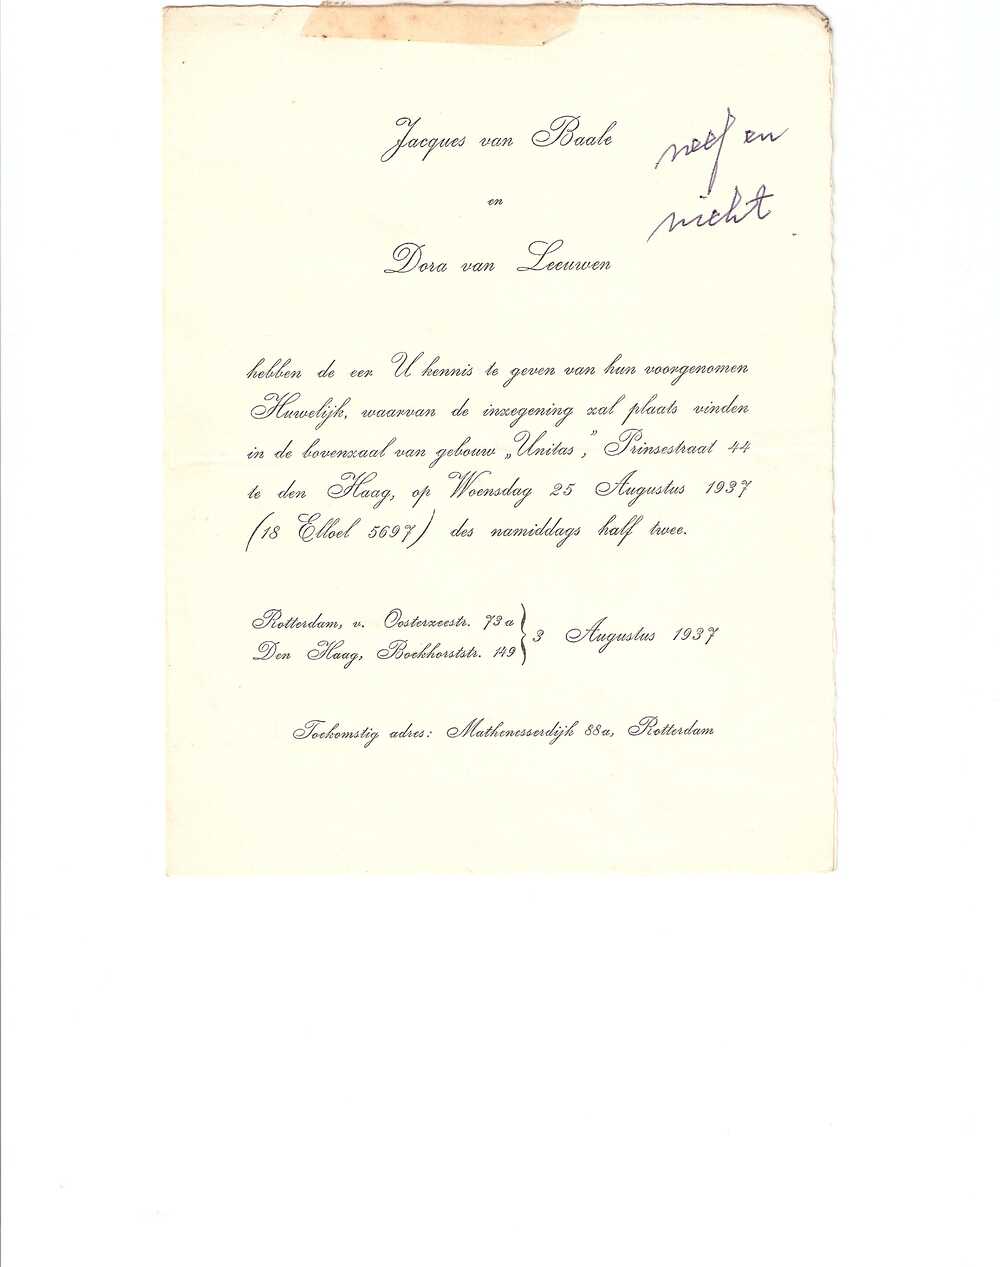 Jacques van Baale
neef en
nicht
en
Dora van Leeuwen
hebben de eer U kennis te geven van hun voorgenomen
Huwelijk, waarvan de inzegening zal plaats vinden
in de bovenzaal van gebouw „Unitas”, Prinsestraat 44
te den Haag, op Woensdag 25 Augustus 1937
(18 Elloel 5697) des namiddags half twee.
Rotterdam, v. Oosterzeestr. 73a
Den Haag, Boekhorststr. 149
} 3 Augustus 1937
Toekomstig adres: Mathenesserdijk 88a, Rotterdam